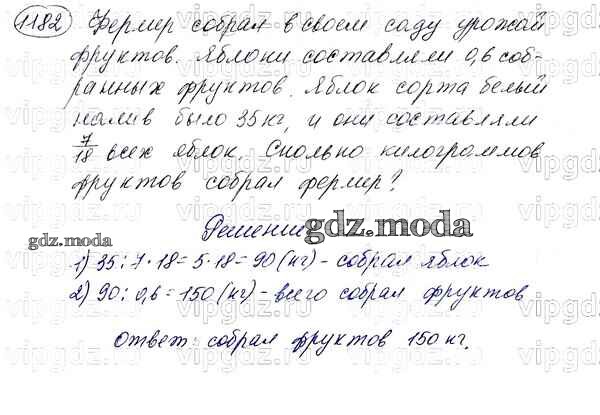 1182 Фермер собрал в своем саду урожай
фруктов. Яблоки составляли 0,6 соб-
ранных фруктов. Яблок сорта белый
налив было 35 кг, и они составляли
7/18 всех яблок. Сколько килограммов
фруктов собрал фермер?
Решение
gdz.moda
gdz.moda
1) 35:7·18=5·18=90(кг)-собрал яблок
2) 90:0,6=150(кг)-всего собрал фруктов
Ответ: собрал фруктов 150 кг.